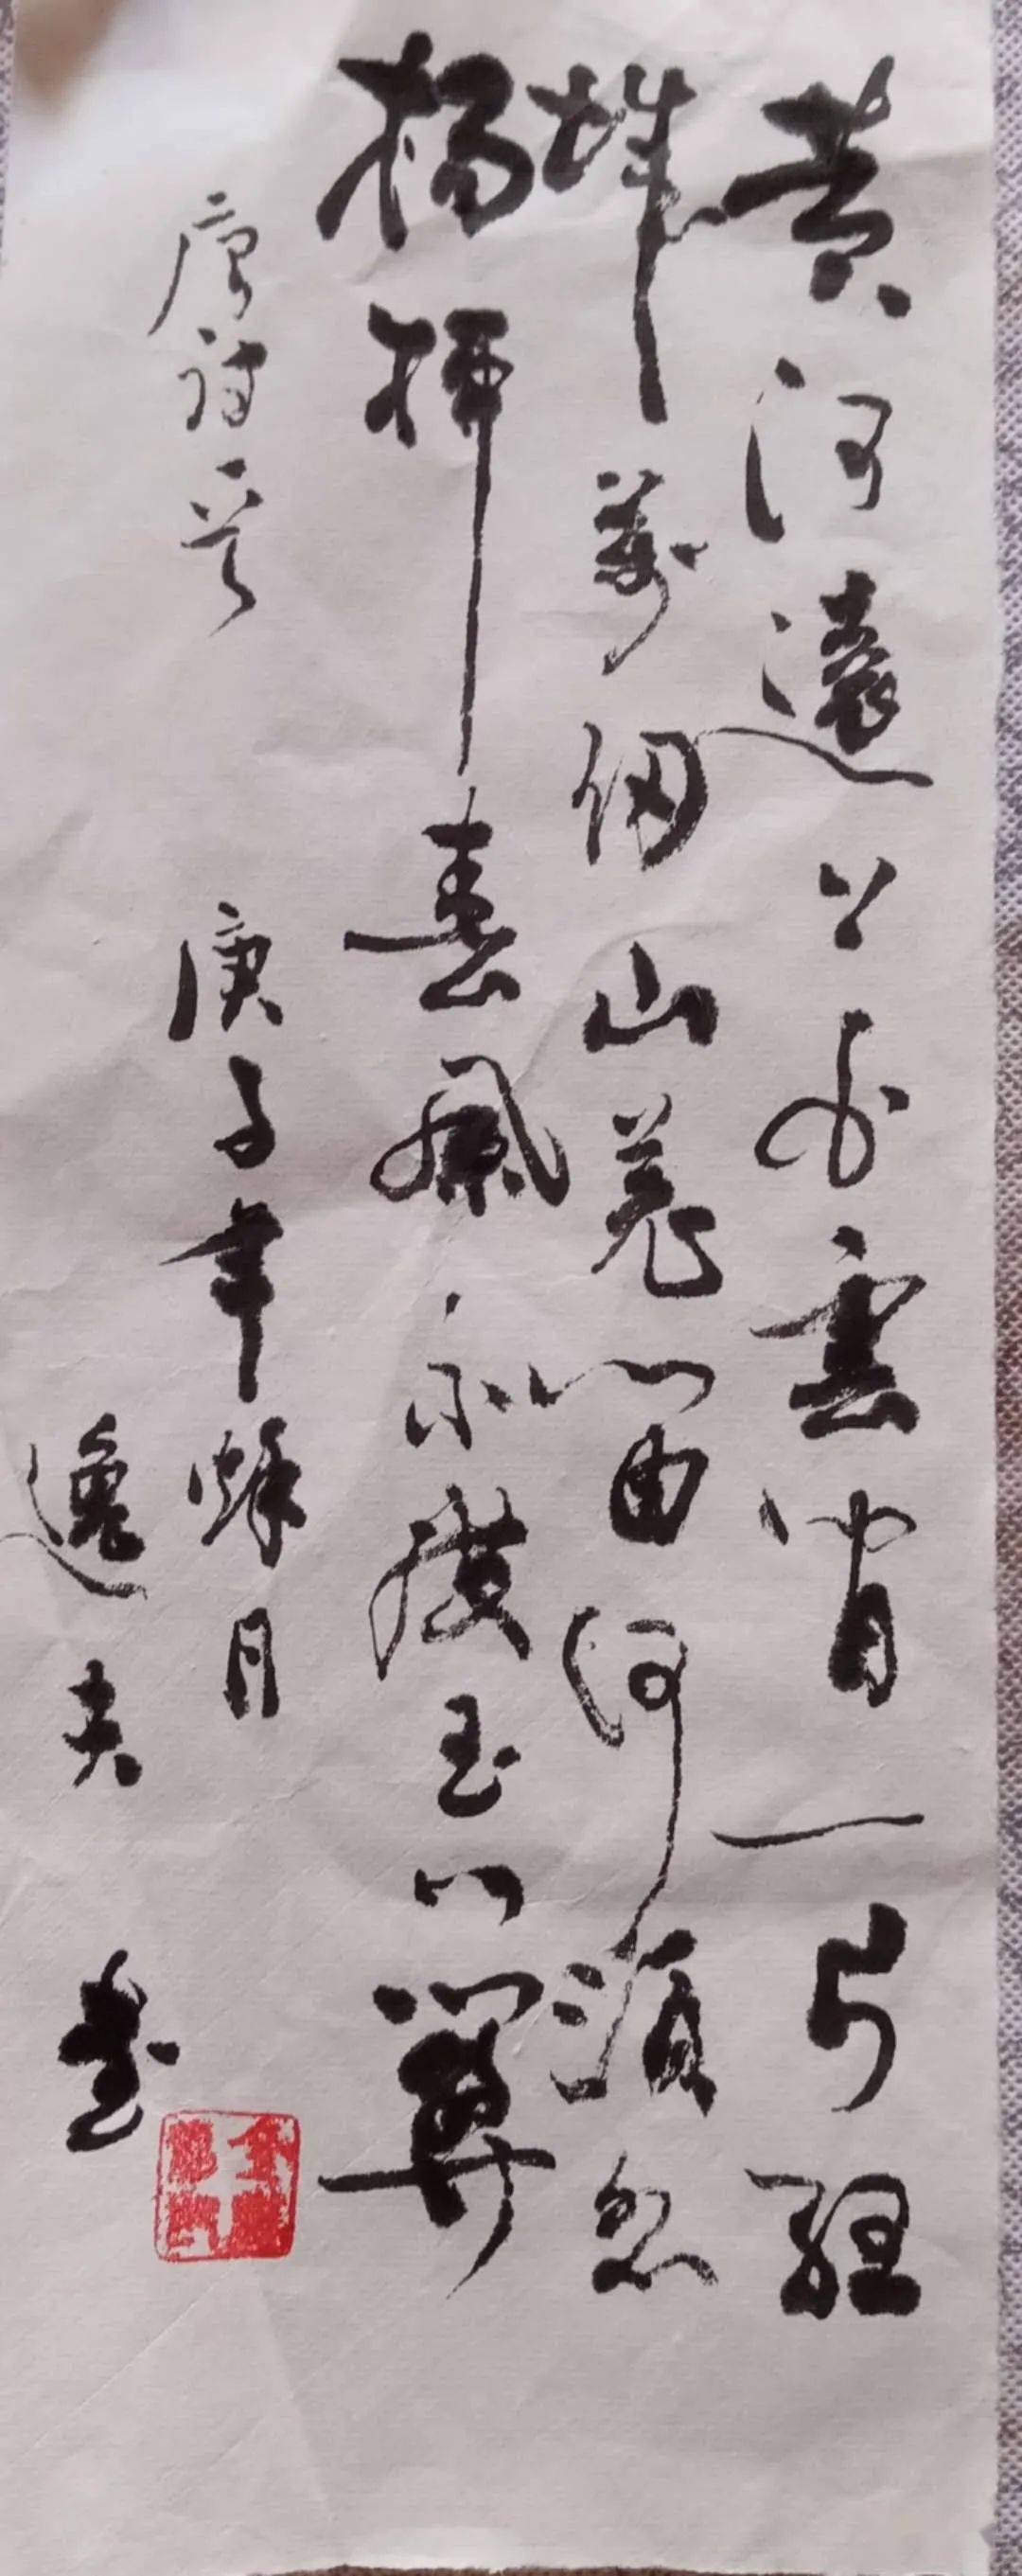 黄河遠上白雲間一片孤
城萬仞山羌笛何須怨
楊柳春風不度玉門關
唐詩一首 庚子年秌月
逸夫書